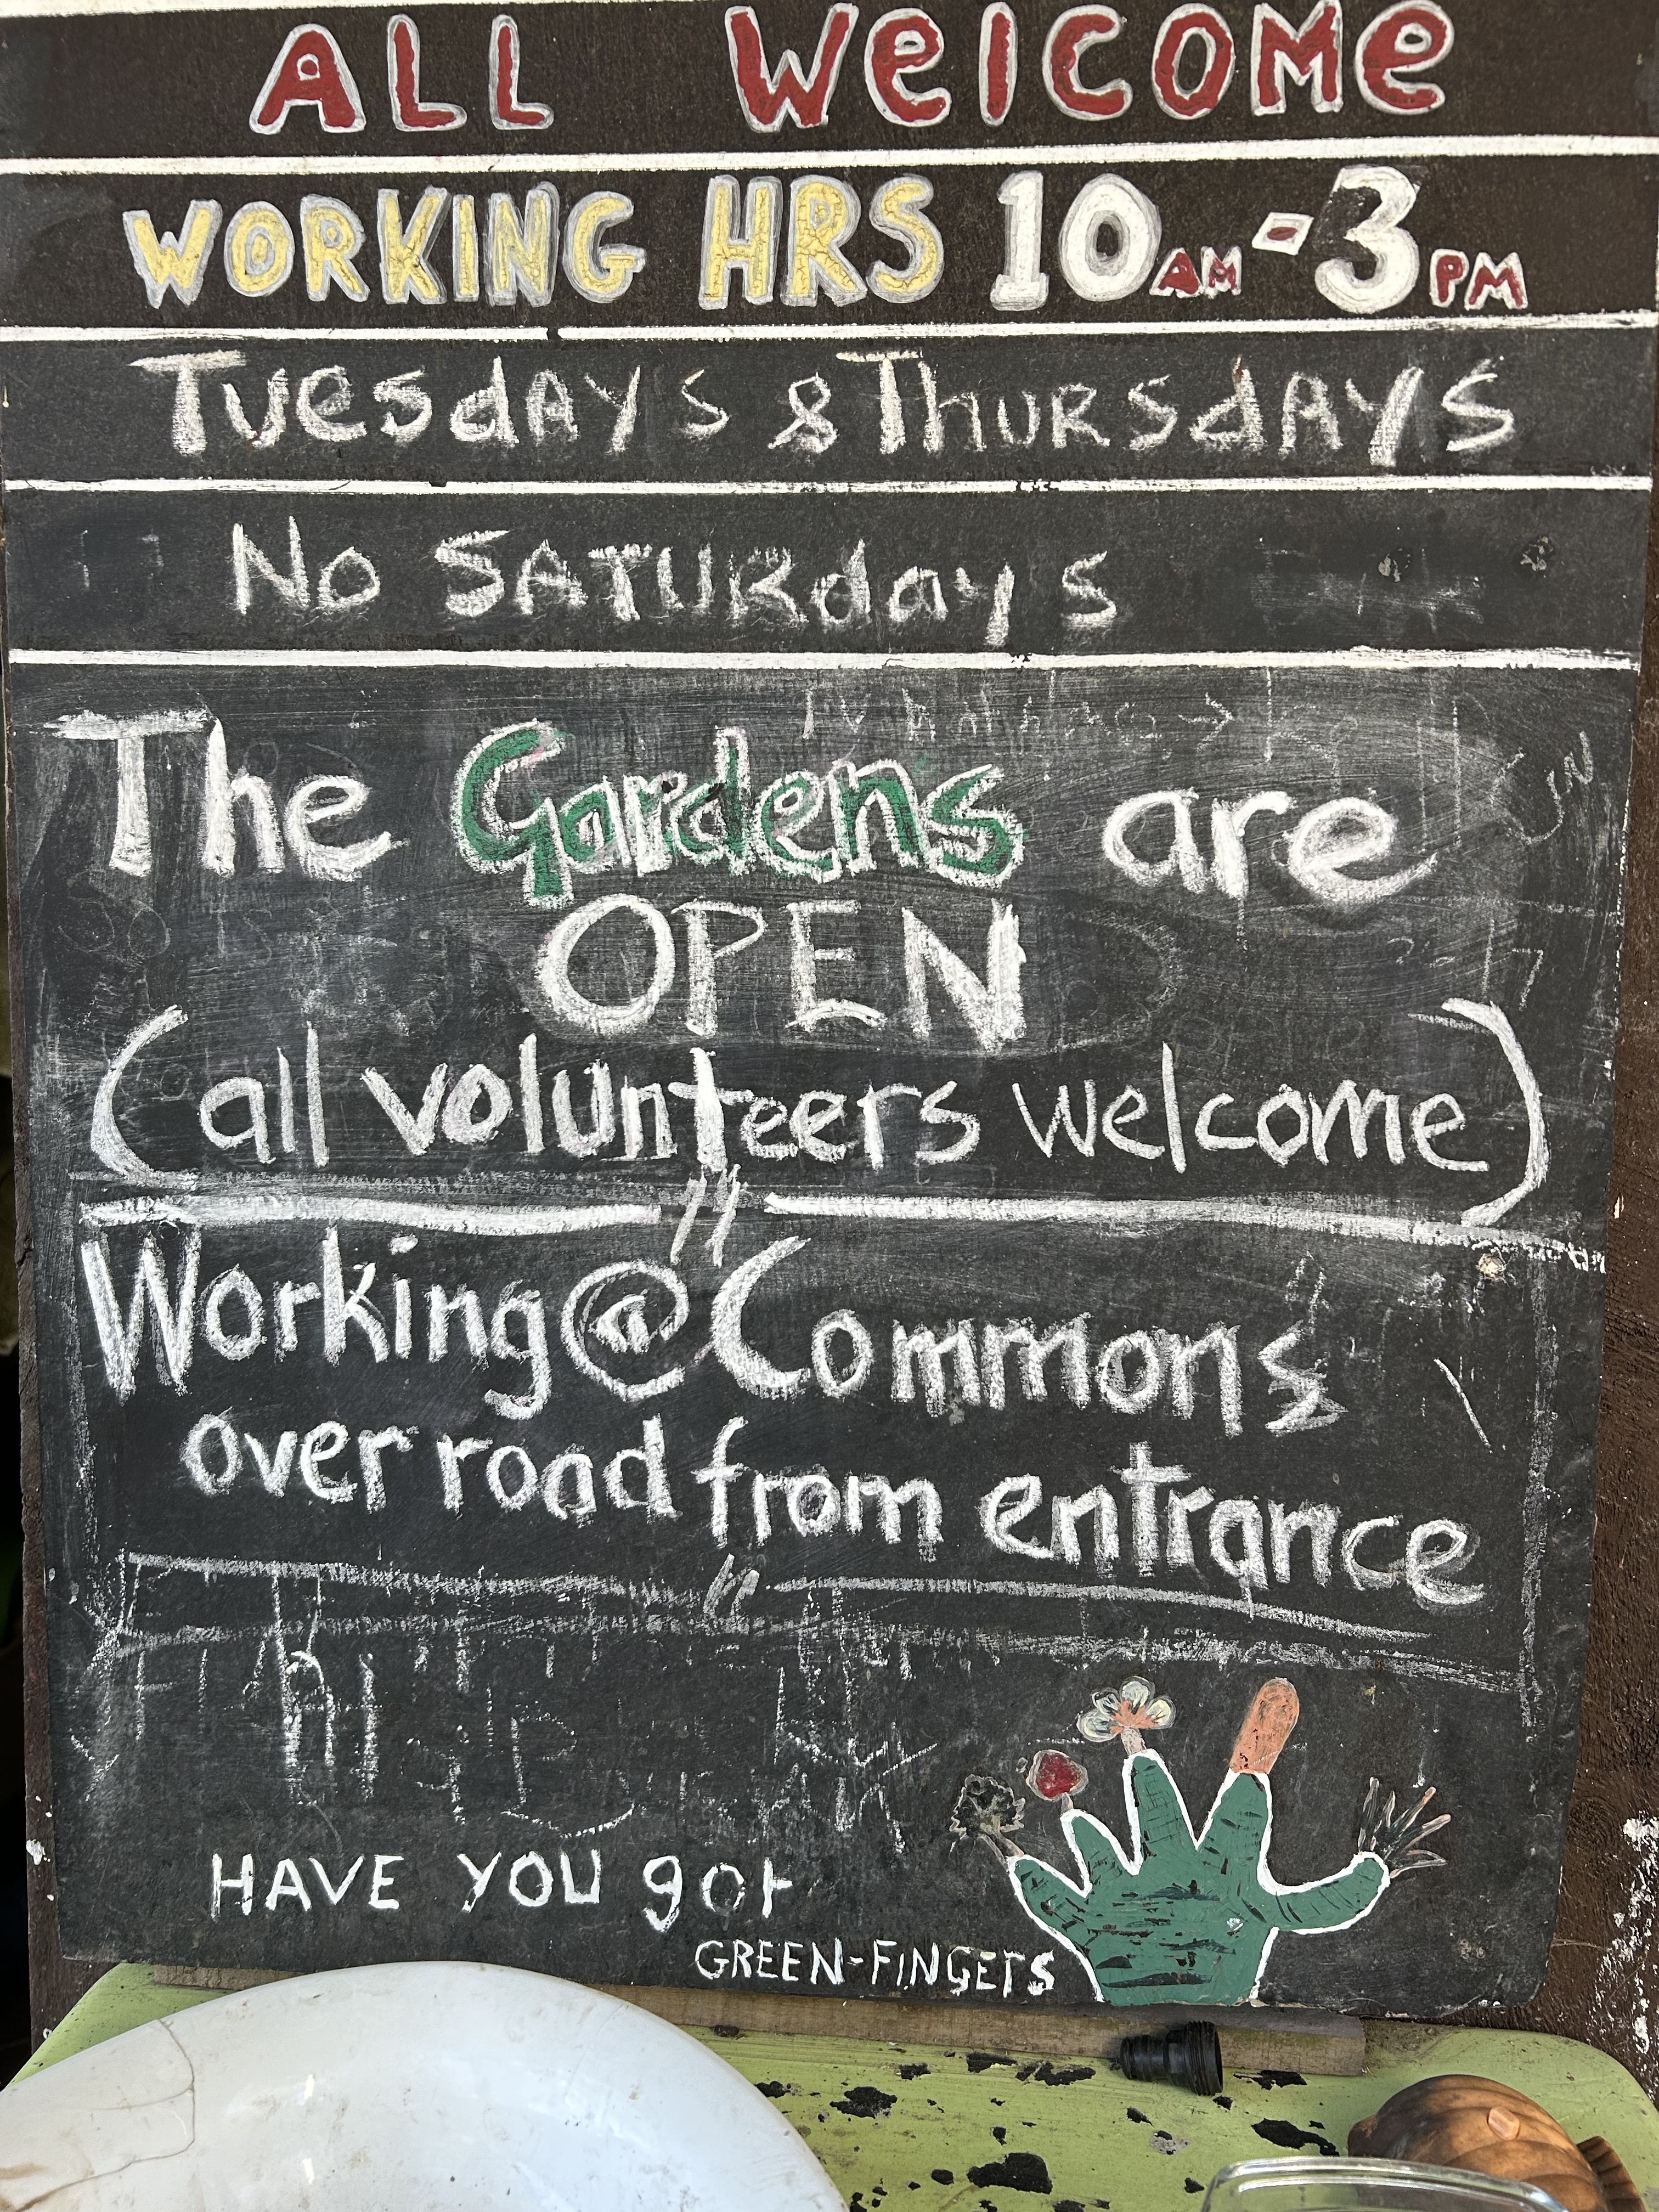 ALL WelCOMe
WORKING HRS 10AM-3PM
TuesdAYs & ThURSdAYS
No SATURdays
The Gardens are
OPEN
(all volunteers welcome)
Working@Commons
over road from entrance
HAVE YOU got
GREEN-FINGErS